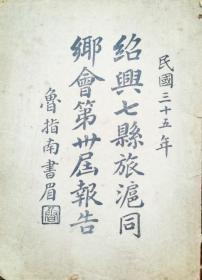 民國三十五年
紹興七縣旅滬同
鄉會第卅屆報告
魯指南書眉